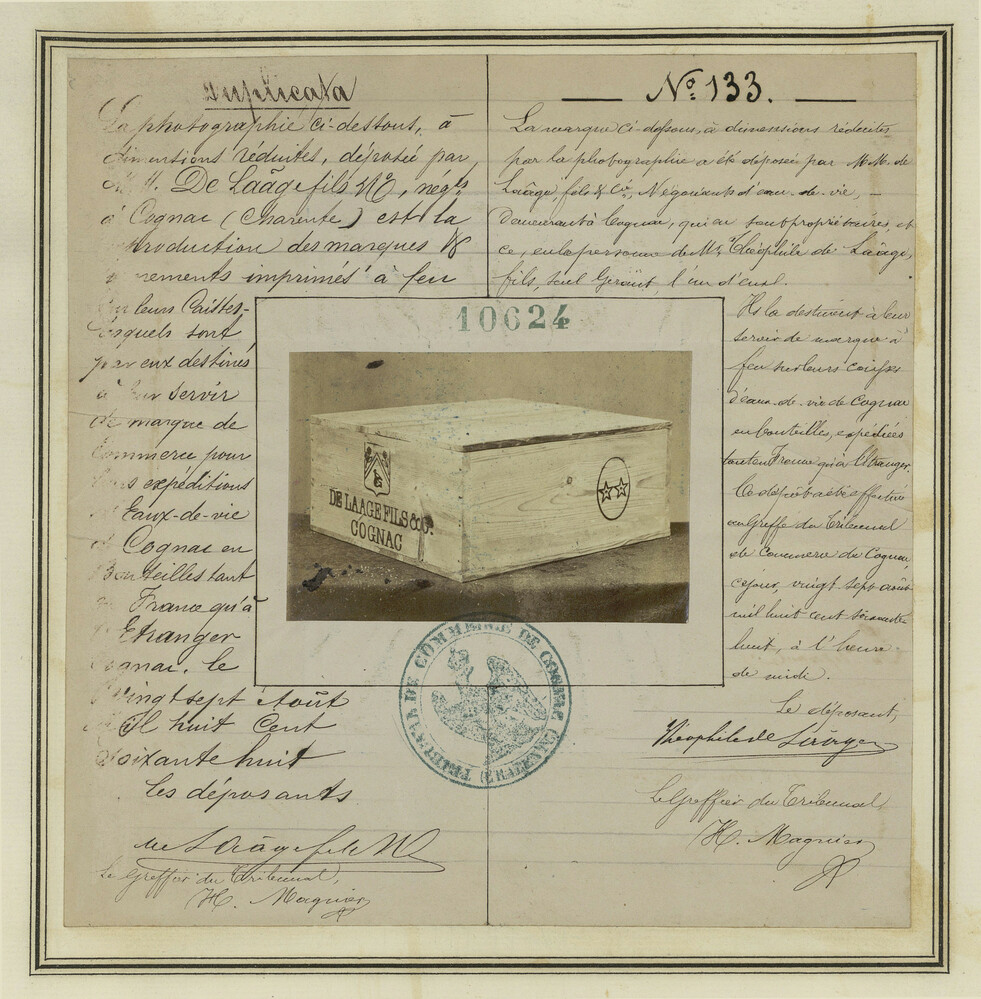 Duplicata
La photographie ci-dessous, à
dimentions réduites, déposée par
M.M. De Laâge fils & Co, négts
à Cognac (Charente) est la
production des marques &
rements imprimés à feu
sur leurs Caisses
lesquels sont
par eux destinés
à leur servir
de marque de
Commerce pour
leurs expéditions
d'Eaux-de-vie
de Cognac en
Bouteilles tant
en France qu'à
l'Etranger
Cognac, le
Vingt sept Août
Mil huit Cent
soixante huit
les déposants
de Laâge fils & Co
Le Greffier du Tribunal,
H. Magnier
No. 133.
La marque ci-dessous, à dimensions réduites
par la photographie a été déposée par M.M. de
Laâge, fils & Cie, Négociants d'eau-de-vie, —
Demeurant à Cognac, qui en sont propriétaires, et
ce, en la personne de Mr Théophile de Laâge,
fils, seul Gérant, l'un d'eux.
Ils la destinent à leur
servir de marque à
feu sur leurs caisses
d'eau-de-vie de Cognac
en bouteilles, expédiées
tant en France qu'à l'Etranger.
Ce dépôt a été effectué
au Greffe du Tribunal
de Commerce de Cognac,
ce jour, vingt sept août
mil huit cent soixante
huit, à l'heure
de midi.
Le déposant,
Théophile de Laâge
Le Greffier du Tribunal,
H. Magnier
10624
DE LAAGE FILS & CO.
COGNAC
TRIBUNAL DE COMMERCE DE COGNAC (CHARENTE)